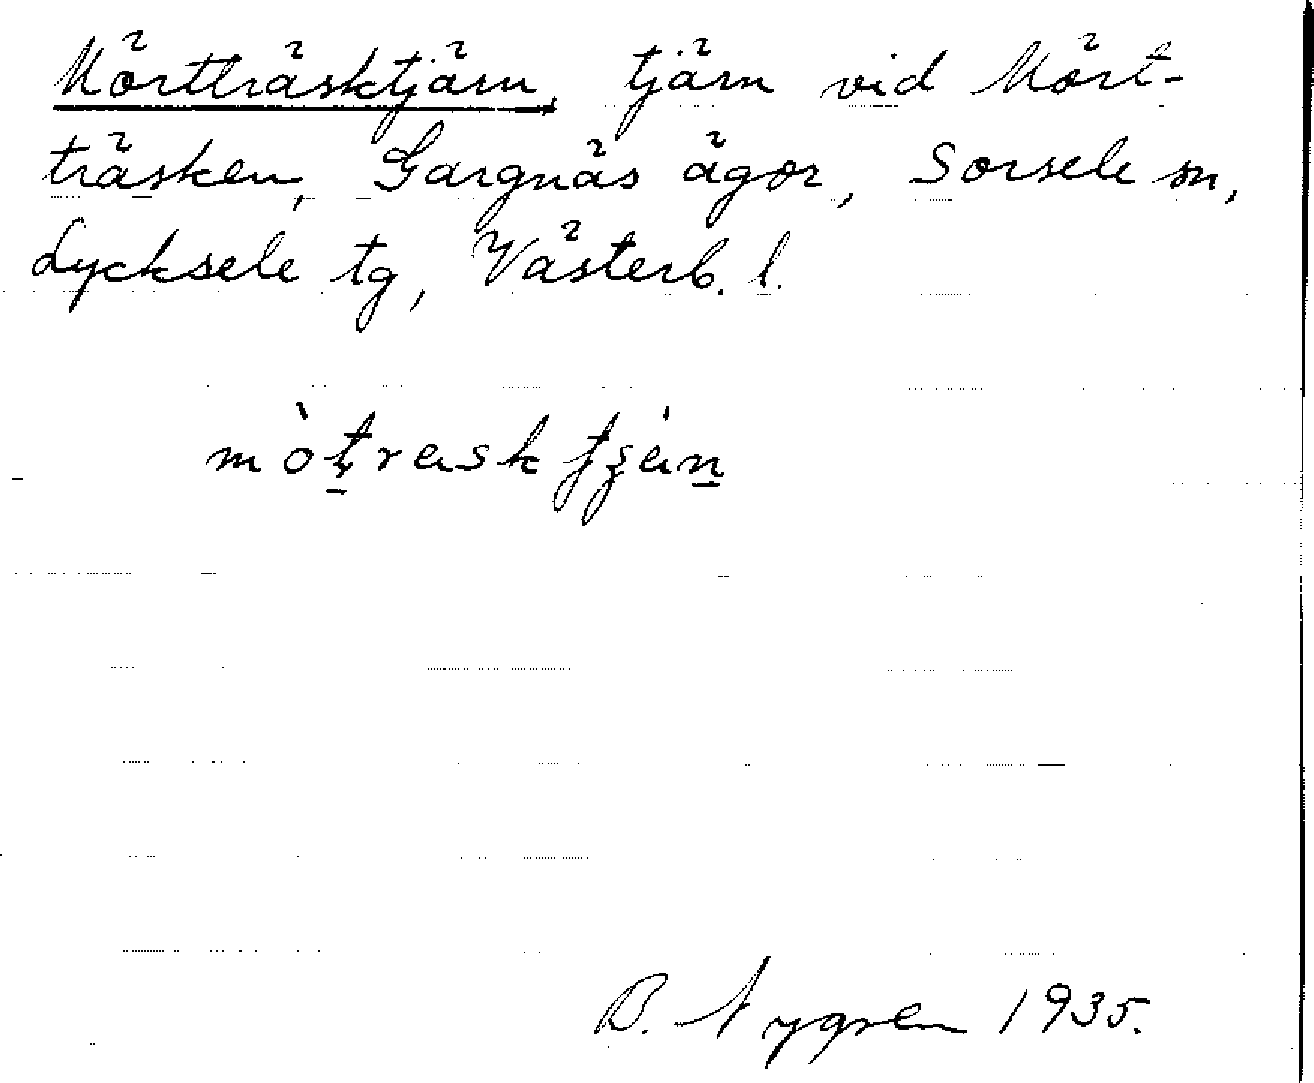 Mörtträsktjärn, tjärn vid Mört-
träsken, Gargnäs ägor, Sorsele sn,
Lycksele tg, Västerb. l.
B. Nygren 1935.